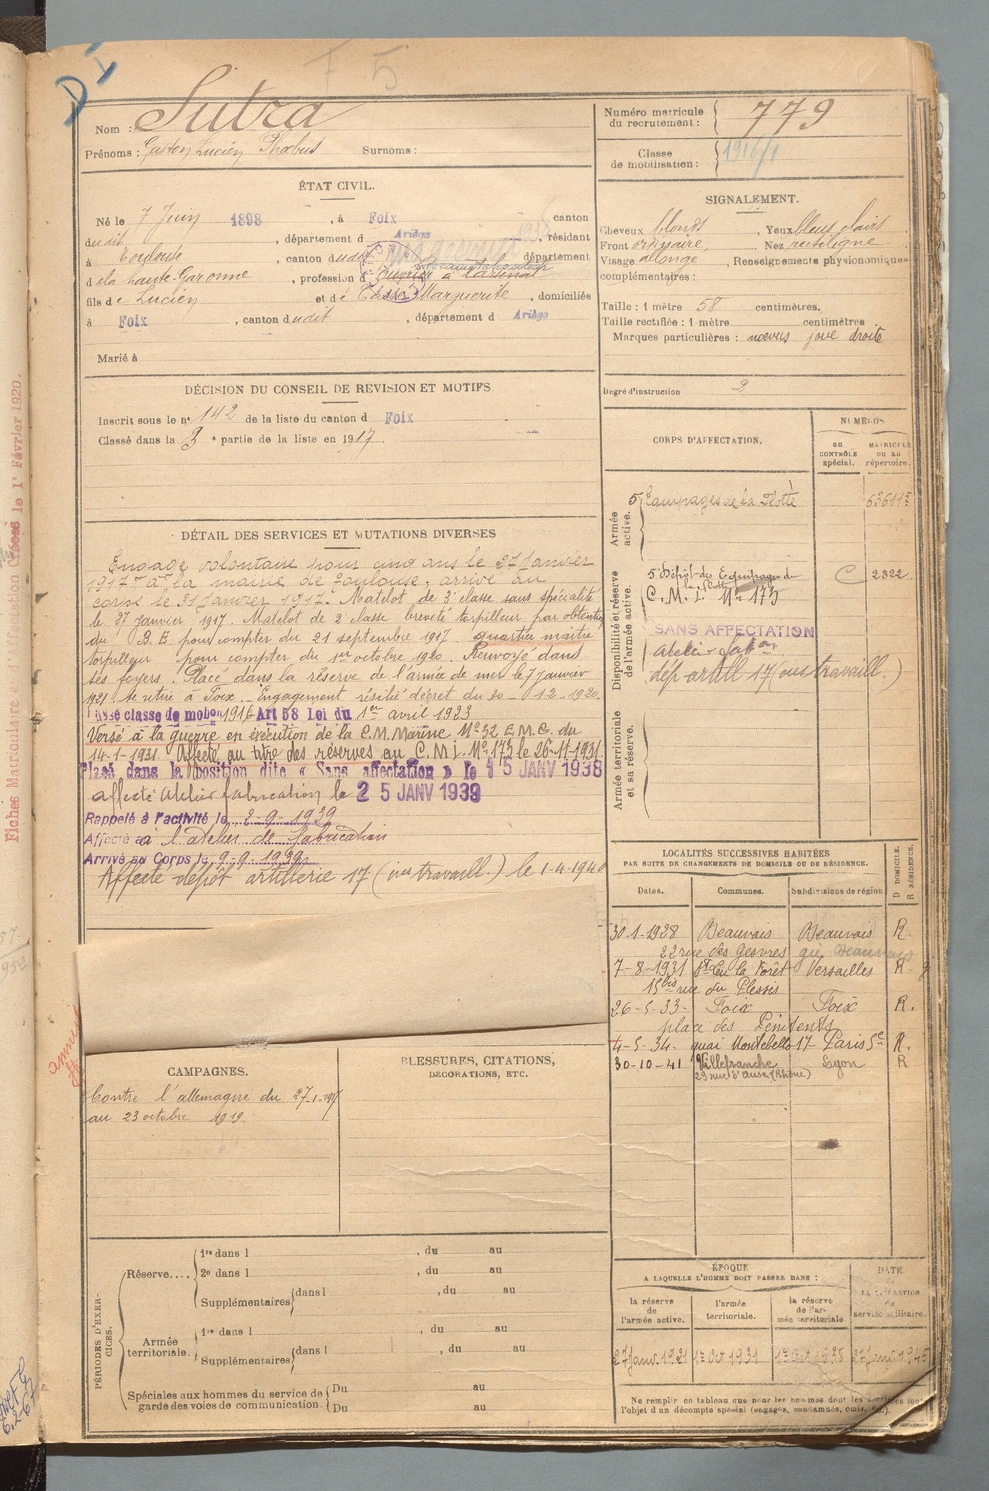 D I
F 5
Nom : Sutra
Prénoms : Gaston Lucien Phœbus Surnoms :
Numéro matricule du recrutement : 779
Classe de mobilisation : 1916/1
ÉTAT CIVIL.
Né le 7 Juin 1898, à Foix canton
dudit, département d Ariège, résidant
à Toulouse, canton dudit département
dela haute-Garonne, profession d ouvrier à l'arsenal
fils de Lucien et de Marguerite, domiciliés
à Foix, canton dudit, département d Ariège
Marié à
SIGNALEMENT.
Cheveux blonds, Yeux bleus clairs
Front ordinaire Nez rectiligne
Visage allongé, Renseignements physionomiques
complémentaires :
Taille : 1 mètre 58 centimètres.
Taille rectifiée : 1 mètre centimètres
Marques particulières : nœvus joue droite
Degré d'instruction 2
DÉCISION DU CONSEIL DE REVISION ET MOTIFS
Inscrit sous le n° 142 de la liste du canton d Foix
Classé dans la 3e partie de la liste en 1917
DÉTAIL DES SERVICES ET MUTATIONS DIVERSES
Engagé volontaire pour cinq ans le 27 Janvier
1917 à la mairie de Toulouse, arrivé au
corps le 31 Janvier 1917. Matelot de 3e classe sans spécialité
le 27 janvier 1917. Matelot de 2e classe breveté torpilleur par obtention
du B.E. pour compter du 21 septembre 1917 quartier maître
torpilleur pour compter du 1er octobre 1920. Renvoyé dans
ses foyers. Placé dans la réserve de l'armée de mer le 7 janvier
1921 se retire à Foix. Engagement résilié décret du 30-12-1920.
Passé classe de mobon 1916 Art 58 Loi du 1er avril 1923
Versé à la guerre en exécution de la C.M. Marine N° 32 E.M.G. du
14-1-1931. Affecté au titre des réserves au C.M.I. N° 173 le 26-11-1931
Placé dans la position dite « Sans affectation » le 15 JANV 1938
affecté Atelier fabrication le 25 JANV 1939
Rappelé à l'activité le 2-9-1939
Affecté à l'atelier de fabrication
Arrivé au Corps le 9-9-1939
Affecté dépôt artillerie 17 (ins travaill.) le 1-4-1940
CORPS D'AFFECTATION.
NUMÉROS
au CONTRÔLE spécial.
MATRICULE OU AU répertoire.
Armée active.
5e Équipages de la Flotte 63611
Disponibilité et réserve de l'armée active.
5e Dépôt des Equipages de la Flotte C 2322
C.M.I. N° 173
SANS AFFECTATION
Atelier fabon
dép artill 17 (ins travaill.)
Armée territoriale et sa réserve.
LOCALITÉS SUCCESSIVES HABITÉES
PAR SUITE DE CHANGEMENTS DE DOMICILE OU DE RÉSIDENCE.
Dates. Communes. Subdivisions de région. D DOMICILE. R RÉSIDENCE.
30-1-1928 Beauvais Beauvais R
22 rue des Gesvres
7-8-1931 St Leu la Forêt Versailles R.
15bis rue du Plessis
26-5-33 Foix Foix R.
place des Pénitents
4-5-34 quai Montebello 17 Paris 5e R.
30-10-41 Villefranche Lyon R
23 rue d'Anse (Rhône)
CAMPAGNES.
Contre l'allemagne du 27-1-1917
au 23 octobre 1919.
BLESSURES, CITATIONS,
DÉCORATIONS, ETC.
PÉRIODES D'EXERCICES.
Réserve....
1re dans l , du au
2e dans l , du au
Supplémentaires dans l , du au
Armée territoriale.
1re dans l , du au
Supplémentaires dans l , du au
Spéciales aux hommes du service de garde des voies de communication.
Du au
Du au
ÉPOQUE
A LAQUELLE L'HOMME DOIT PASSER DANS :
DATE DE LA LIBÉRATION du service militaire.
la réserve de l'armée active.
l'armée territoriale.
la réserve de l'armée territoriale
27 janv. 1921 1er Oct 1931 1er Oct 1938 27 janv 1945
Ne remplir ce tableau que pour les hommes dont les services font
l'objet d'un décompte spécial (engagés, condamnés, omis, etc.).